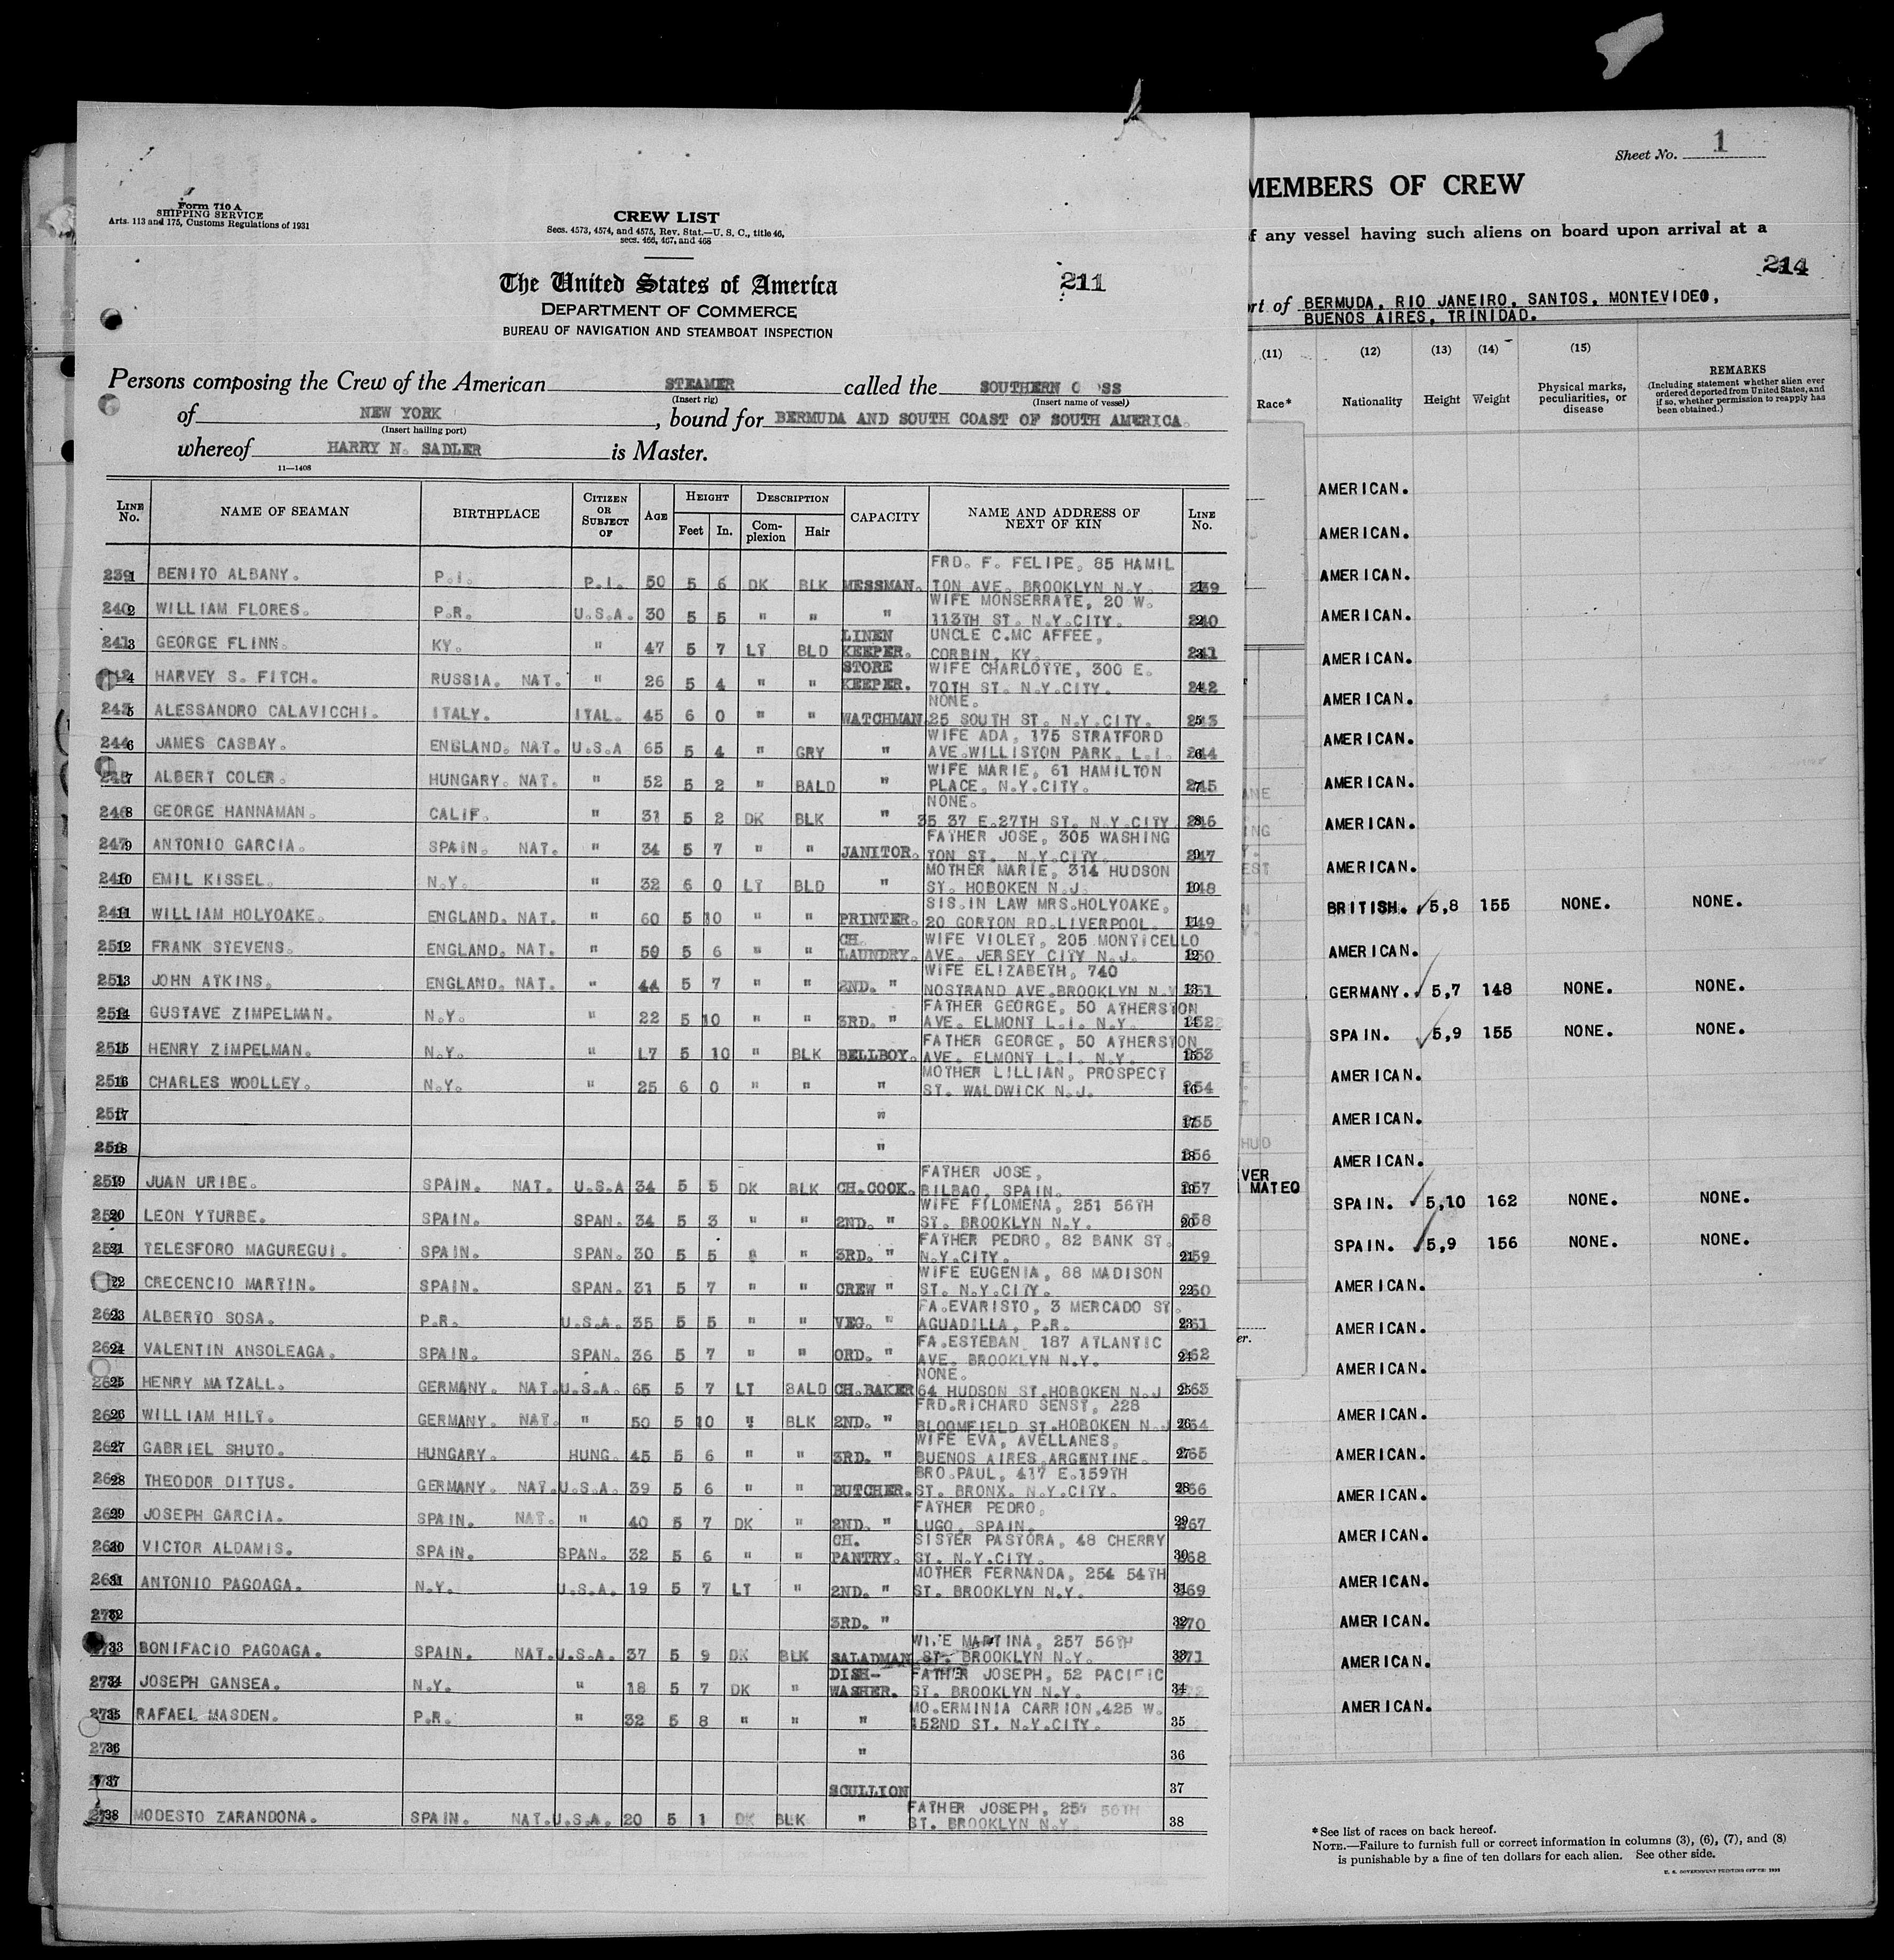 Form 710 A
SHIPPING SERVICE
Arts. 113 and 175, Customs Regulations of 1931
CREW LIST
Secs. 4573, 4574, and 4575, Rev. Stat.—U. S. C., title 46,
secs. 466, 467, and 468
The United States of America
211
DEPARTMENT OF COMMERCE
BUREAU OF NAVIGATION AND STEAMBOAT INSPECTION
Persons composing the Crew of the American STEAMER called the SOUTHERN
(Insert rig) (Insert name of vessel)
of NEW YORK, bound for BERMUDA AND SOUTH COAST OF SOUTH AMERICA.
(Insert hailing port)
whereof HARRY N. SADLER is Master.
11—1408
LINE No. NAME OF SEAMAN BIRTHPLACE CITIZEN OR SUBJECT OF AGE HEIGHT Feet In. DESCRIPTION Complexion Hair CAPACITY NAME AND ADDRESS OF NEXT OF KIN LINE No.
239 1 BENITO ALBANY. P.I. P.I. 50 5 6 DK BLK MESSMAN. FRD. F. FELIPE, 85 HAMIL TON AVE. BROOKLYN N.Y. 239
240 2 WILLIAM FLORES. P.R. U.S.A. 30 5 5 " " " WIFE MONSERRATE, 20 W. 113TH ST. N.Y.CITY. 240
241 3 GEORGE FLINN. KY. " 47 5 7 LT BLD LINEN KEEPER. UNCLE C.MC AFFEE, CORBIN, KY. 241
242 4 HARVEY S. FITCH. RUSSIA. NAT. " 26 5 4 " " STORE KEEPER. WIFE CHARLOTTE, 300 E. 70TH ST. N.Y.CITY. 242
243 5 ALESSANDRO CALAVICCHI. ITALY. ITAL. 45 6 0 " " WATCHMAN. NONE. 25 SOUTH ST. N.Y.CITY. 243
244 6 JAMES CASBAY. ENGLAND. NAT. U.S.A 65 5 4 " GRY " WIFE ADA, 175 STRATFORD AVE.WILLISTON PARK, L.I. 244
245 7 ALBERT COLER. HUNGARY. NAT. " 52 5 2 " BALD " WIFE MARIE, 61 HAMILTON PLACE, N.Y.CITY. 245
246 8 GEORGE HANNAMAN. CALIF. " 31 5 2 DK BLK " NONE. 35 37 E.27TH ST. N.Y.CITY. 246
247 9 ANTONIO GARCIA. SPAIN. NAT. " 34 5 7 " " JANITOR. FATHER JOSE, 305 WASHING TON ST. N.Y.CITY. 247
248 10 EMIL KISSEL. N.Y. " 32 6 0 LT BLD " MOTHER MARIE, 314 HUDSON ST. HOBOKEN N.J. 248
249 11 WILLIAM HOLYOAKE. ENGLAND. NAT. " 60 5 10 " " PRINTER. SIS.IN LAW MRS.HOLYOAKE, 20 GORTON RD.LIVERPOOL. 249
250 12 FRANK STEVENS. ENGLAND. NAT. " 50 5 6 " " CH. LAUNDRY. WIFE VIOLET, 205 MONTICELLO AVE. JERSEY CITY N.J. 250
251 13 JOHN ATKINS. ENGLAND. NAT. " 44 5 7 " " 2ND. " WIFE ELIZABETH, 740 NOSTRAND AVE.BROOKLYN N.Y 251
252 14 GUSTAVE ZIMPELMAN. N.Y. " 22 5 10 " " 3RD. " FATHER GEORGE, 50 ATHERSTON AVE. ELMONT L.I. N.Y. 252
253 15 HENRY ZIMPELMAN. N.Y. " L7 5 10 " BLK BELLBOY. FATHER GEORGE, 50 ATHERSTON AVE. ELMONT L.I. N.Y. 253
254 16 CHARLES WOOLLEY. N.Y. " 25 6 0 " " " MOTHER LILLIAN, PROSPECT ST. WALDWICK N.J. 254
255 17 " 255
256 18 " 256
257 19 JUAN URIBE. SPAIN. NAT. U.S.A 34 5 5 DK BLK CH.COOK. FATHER JOSE, BILBAO, SPAIN. 257
258 20 LEON YTURBE. SPAIN. SPAN. 34 5 3 " " 2ND. " WIFE FILOMENA, 251 56TH ST. BROOKLYN N.Y. 258
259 21 TELESFORO MAGUREGUI. SPAIN. SPAN. 30 5 5 " " 3RD. " FATHER PEDRO, 82 BANK ST. N.Y.CITY. 259
22 CRECENCIO MARTIN. SPAIN. SPAN. 31 5 7 " " CREW " WIFE EUGENIA, 88 MADISON ST. N.Y.CITY. 260
23 ALBERTO SOSA. P.R. U.S.A. 35 5 5 " " VEG. " FA.EVARISTO, 3 MERCADO ST. AGUADILLA, P.R. 261
24 VALENTIN ANSOLEAGA. SPAIN. SPAN. 36 5 7 " " ORD. " FA.ESTEBAN 187 ATLANTIC AVE. BROOKLYN N.Y. 262
25 HENRY MATZALL. GERMANY. NAT.U.S.A. 65 5 7 LT BALD CH.BAKER NONE. 64 HUDSON ST.HOBOKEN N.J 263
26 WILLIAM HILT. GERMANY. NAT. " 50 5 10 " BLK 2ND. " FRD.RICHARD SENST, 228 BLOOMFIELD ST.HOBOKEN N.J 264
27 GABRIEL SHUTO. HUNGARY. HUNG. 45 5 6 " " 3RD. " WIFE EVA, AVELLANES, BUENOS AIRES ARGENTINE. 265
28 THEODOR DITTUS. GERMANY. NAT.U.S.A. 39 5 6 " " BUTCHER. BRO.PAUL, 417 E.159TH ST. BRONX. N.Y.CITY. 266
29 JOSEPH GARCIA. SPAIN. NAT. " 40 5 7 DK " 2ND. " FATHER PEDRO, LUGO, SPAIN. 267
30 VICTOR ALDAMIS. SPAIN. SPAN. 32 5 6 " " CH. PANTRY. SISTER PASTORA, 48 CHERRY ST. N.Y.CITY. 268
31 ANTONIO PAGOAGA. N.Y. U.S.A. 19 5 7 LT " 2ND. " MOTHER FERNANDA, 254 54TH ST. BROOKLYN N.Y. 269
32 3RD. " 270
33 BONIFACIO PAGOAGA. SPAIN. NAT.U.S.A. 37 5 9 DK BLK SALADMAN WIFE MARTINA, 257 56TH ST. BROOKLYN N.Y. 271
34 JOSEPH GANSEA. N.Y. " 18 5 7 DK " DISH-WASHER. FATHER JOSEPH, 52 PACIFIC ST. BROOKLYN N.Y. 34
35 RAFAEL MASDEN. P.R. " 32 5 8 " " " MO.ERMINIA CARRION,425 W. 152ND ST. N.Y.CITY. 35
36 " 36
37 SCULLION 37
38 MODESTO ZARANDONA. SPAIN. NAT.U.S.A. 20 5 1 DK BLK " FATHER JOSEPH, 257 56TH ST. BROOKLYN N.Y. 38
Sheet No. 1
MEMBERS OF CREW
f any vessel having such aliens on board upon arrival at a
214
rt of BERMUDA, RIO JANEIRO, SANTOS, MONTEVIDEO,
BUENOS AIRES, TRINIDAD.
(11) (12) (13) (14) (15)
Race* Nationality Height Weight Physical marks, peculiarities, or disease REMARKS (Including statement whether alien ever ordered deported from United States, and if so, whether permission to reapply has been obtained.)
AMERICAN.
AMERICAN.
AMERICAN.
AMERICAN.
AMERICAN.
AMERICAN.
AMERICAN.
AMERICAN.
AMERICAN.
AMERICAN.
BRITISH. 5,8 155 NONE. NONE.
AMERICAN.
GERMANY. 5,7 148 NONE. NONE.
SPAIN. 5,9 155 NONE. NONE.
AMERICAN.
AMERICAN.
AMERICAN.
VER
MATEO SPAIN. 5,10 162 NONE. NONE.
SPAIN. 5,9 156 NONE. NONE.
AMERICAN.
AMERICAN.
AMERICAN.
AMERICAN.
AMERICAN.
AMERICAN.
AMERICAN.
AMERICAN.
AMERICAN.
AMERICAN.
AMERICAN.
*See list of races on back hereof.
NOTE.—Failure to furnish full or correct information in columns (3), (6), (7), and (8)
is punishable by a fine of ten dollars for each alien. See other side.